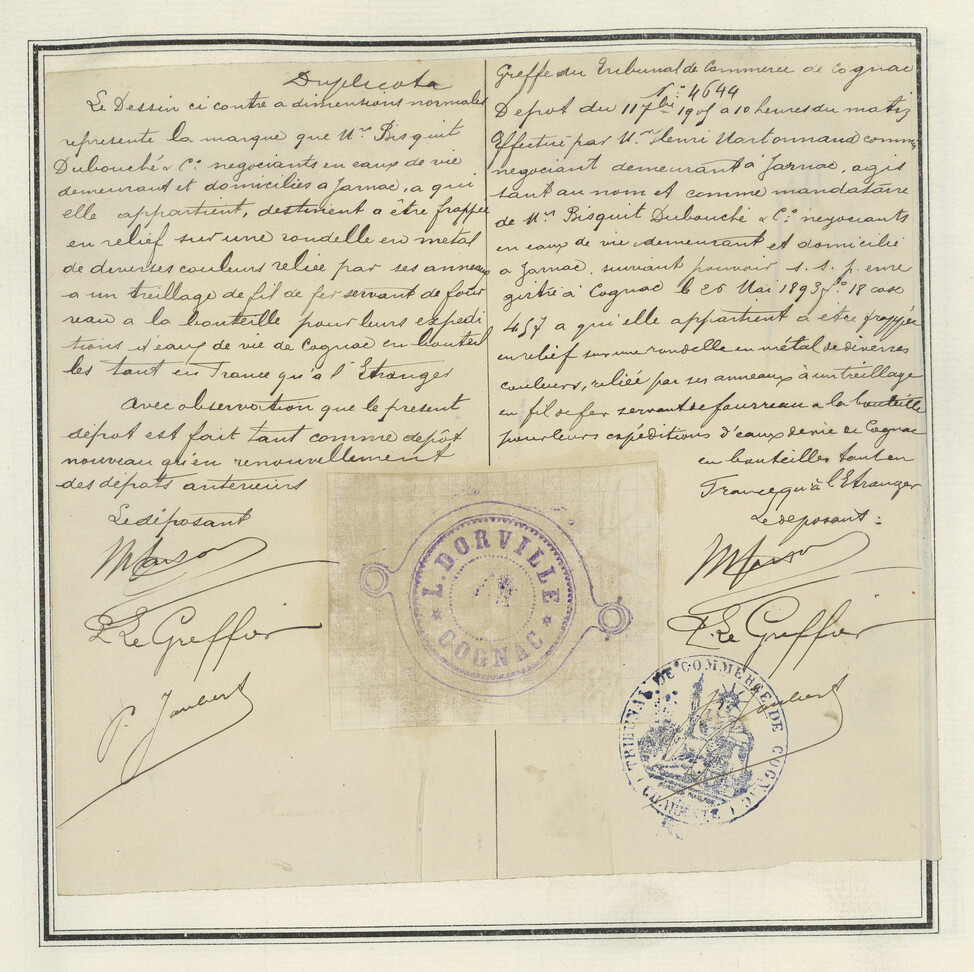 Duplicata
Le Dessin ci contre a dimensions normales
represente la marque que Mrs Bisquit
Dubouché & Cie negociants en eaux de vie
demeurant et domiciliés a Jarnac, a qui
elle appartient, destinent a être frappée
en relief sur une rondelle en metal
de diverses couleurs reliée par ses anneaux
a un treillage de fil de fer servant de four
reau a la bouteille pour leurs expedi
tions d'eaux de vie de Cognac en bouteil
les tant en France qu'a l'Etranger
Avec observation que le present
dépot est fait tant comme depôt
nouveau qu'en renouvellement
des dépots anterieurs
Le déposant
P. Le Greffier
P. Jaubert
Greffe du Tribunal de Commerce de Cognac
No. 4644
Depot du 11 7bre 1905 a 10 heures du matin
Effectué par Mr Henri comme
negociant demeurant à Jarnac, agis
sant au nom et comme mandataire
de Mrs Bisquit Dubouché & Cie negociants
en eaux de vie demeurant et domicilié
a Jarnac, suivant pouvoir s. s. p. enre
gistré à Cognac le 26 Mai 1893 fo. 18 case
457 a qui elle appartient a etre frappée
en relief sur une rondelle en métal de diverses
couleurs, reliée par ses anneaux à un treillage
en fil de fer servant de fourreau a la bouteille
pour leurs expéditions d'eaux de vie de Cognac
en bouteilles tant en
France qu'à l'Etranger
Le deposant :
P. Le Greffier
Jaubert
L. DORVILLE
COGNAC
TRIBUNAL DE COMMERCE DE COGNAC
(CHARENTE)